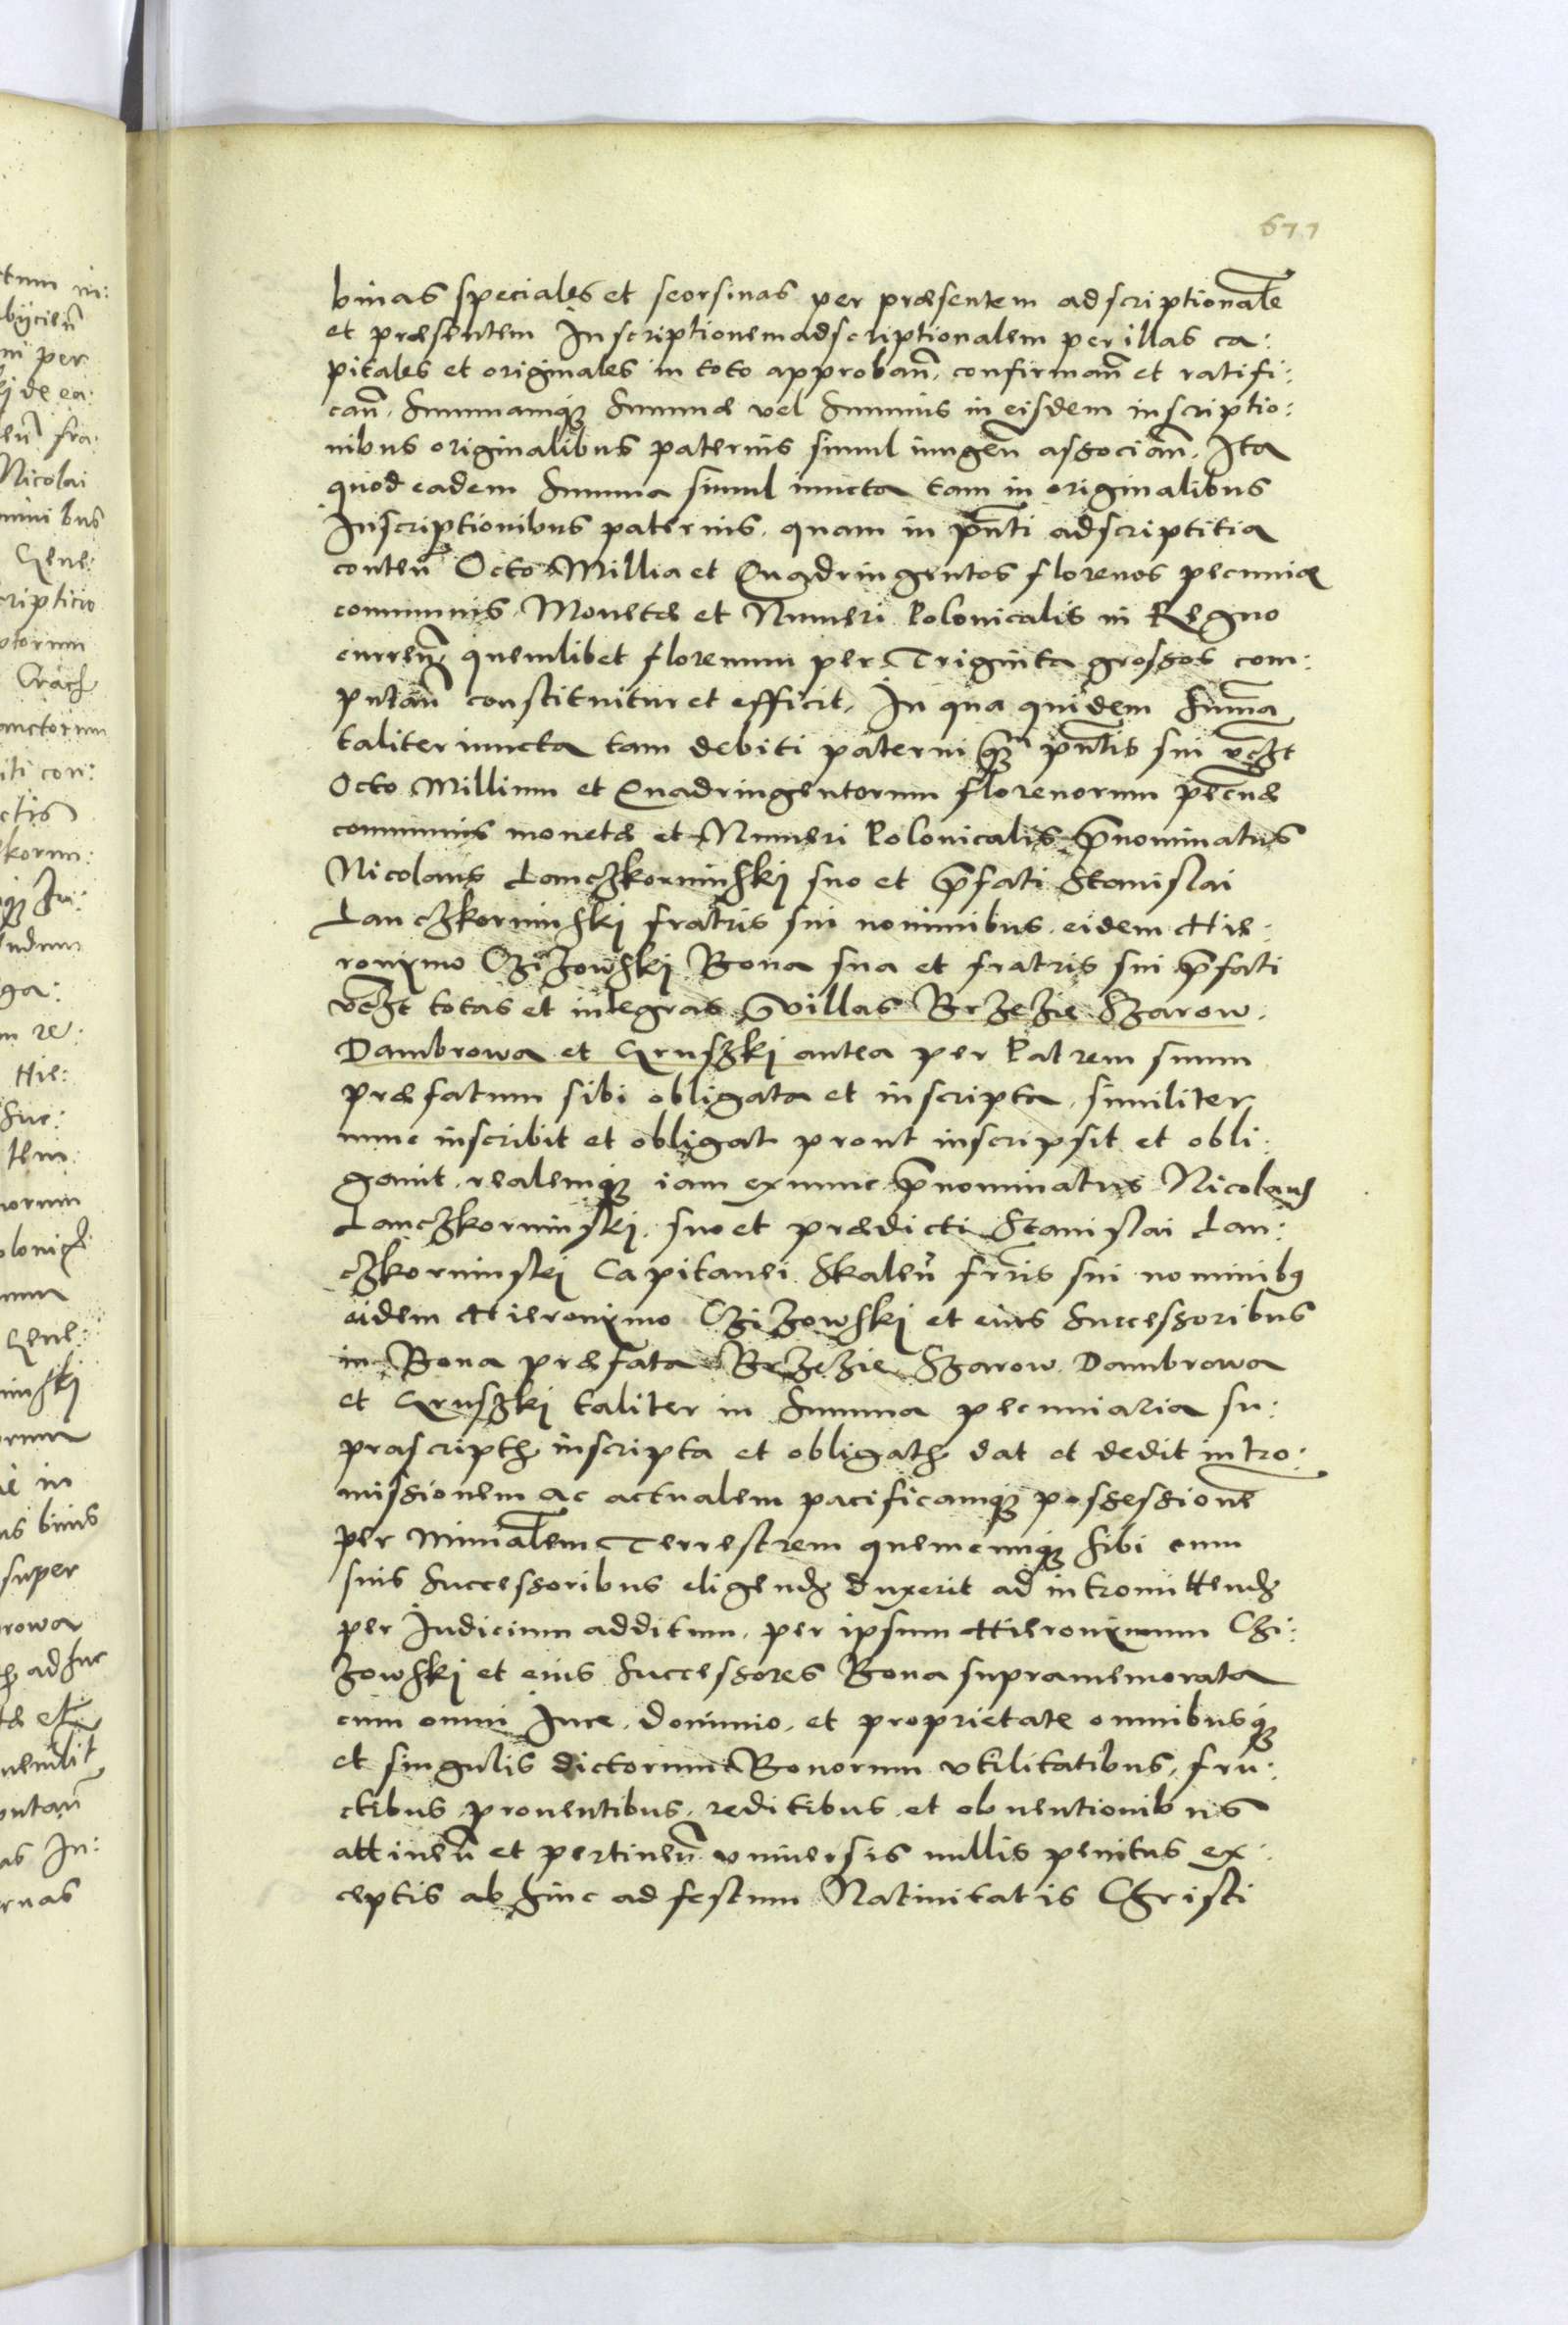 677
binas speciales et seorsinas per præsentem adscriptionale̅
et præsentem Inscriptionem adscriptionalem per illas ca:
pitales et originales in toto approban̅, confirman̅ et ratifi:
can̅, Summamq̨ Summæ vel Summis in eisdem inscriptio:
nibus originalibus paternis simul iungen̅ associan̅, Ita
quod eadem Summa simul iuncta tam in originalibus
Inscriptionibus paternis, quam in pn̅ti adscriptitia
conten̅ Octo Millia et Quadringentos florenos pecuniæ
communis Monetæ et Numeri Polonicalis in Regno
curren̅, quemlibet florenum per Triginta grossos com:
putan̅ constituitur et efficit, In qua quidem Sum̅a
taliter iuncta tam debiti paterni q̨ pn̅tis sui vczt
Octo Millium et Quadringentorum florenorum pecu̅æ
communis monetæ et Numeri Polonicalis p̅nominatus
Nicolaus Lanczkorunskÿ suo et p̅fati Stanislai
Lanczkorunskÿ fratris sui nominibus, eidem Hie:
ronÿmo Czizowskÿ Bona sua et fratris sui p̅fati
vczt totas et integras villas Brzezie Szarow,
Dambrowa et Gruszkÿ antea per Patrem suum
præfatum sibi obligata et inscripta, similiter
nunc inscribit et obligat prout inscripsit et obli:
gauit, realemq̨ iam exnunc p̅nominatus Nicolaus
Lanczkorunskÿ, suo et prædicti Stanislai Lan:
czkorunskÿ Capitanei Skalen̅ fr̅is sui nominib9
eidem Hieronÿmo Czizowskÿ et eius Successoribus
in Bona præfata Brzezie Szarow Dambrowa
et Gruszkÿ taliter in Summa pecuniaria su:
prascripth inscripta et obligath dat et dedit intro:
missionem ac actualem pacificamq̨ possessione̅
per Min̅alem Terrestrem quemcunq̨ sibi cum
suis Successoribus eligend̨ duxerit ad intromittend̨
per Iudicium additum, per ipsum Hieronÿmum Czi:
zowskÿ et eius Successores Bona supramemorata
cum omni Iure, dominio, et proprietate omnibusq̨
et singulis dictorum Bonorum vtilitatibus, fru:
ctibus, prouentibus, reditibus, et obuentionibus
attinen̅ et pertinen̅ vniuersis nullis penitus ex:
ceptis ab hinc ad festum Natiuitatis Christi